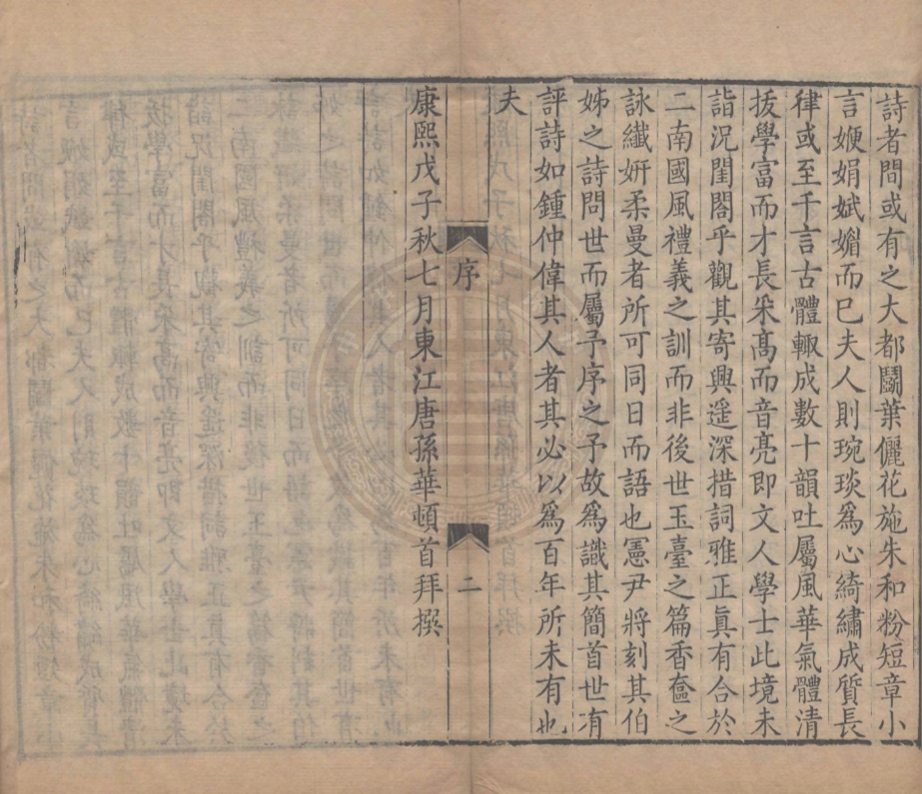 詩者問或有之大都鬭葉儷花施朱和粉短章小
言嫂娟娬媚而已夫人則琬琰爲心綺繡成質長
律或至千言古體輙成數十韻吐屬風華氣體清
拔學富而才長采髙而音亮即文人學士此境未
詣況閨閣乎觀其寄興遥深措詞雅正眞有合於
二南國風禮義之訓而非後世玉臺之篇香奩之
詠纎妍柔曼者所可同日而語也憲尹將刻其伯
姊之詩問世而屬予序之予故爲識其簡首世有
評詩如鍾仲偉其人者其必以爲百年所未有也
夫
康熙戊子秋七月東江唐孫華頓首拜撰
序
二